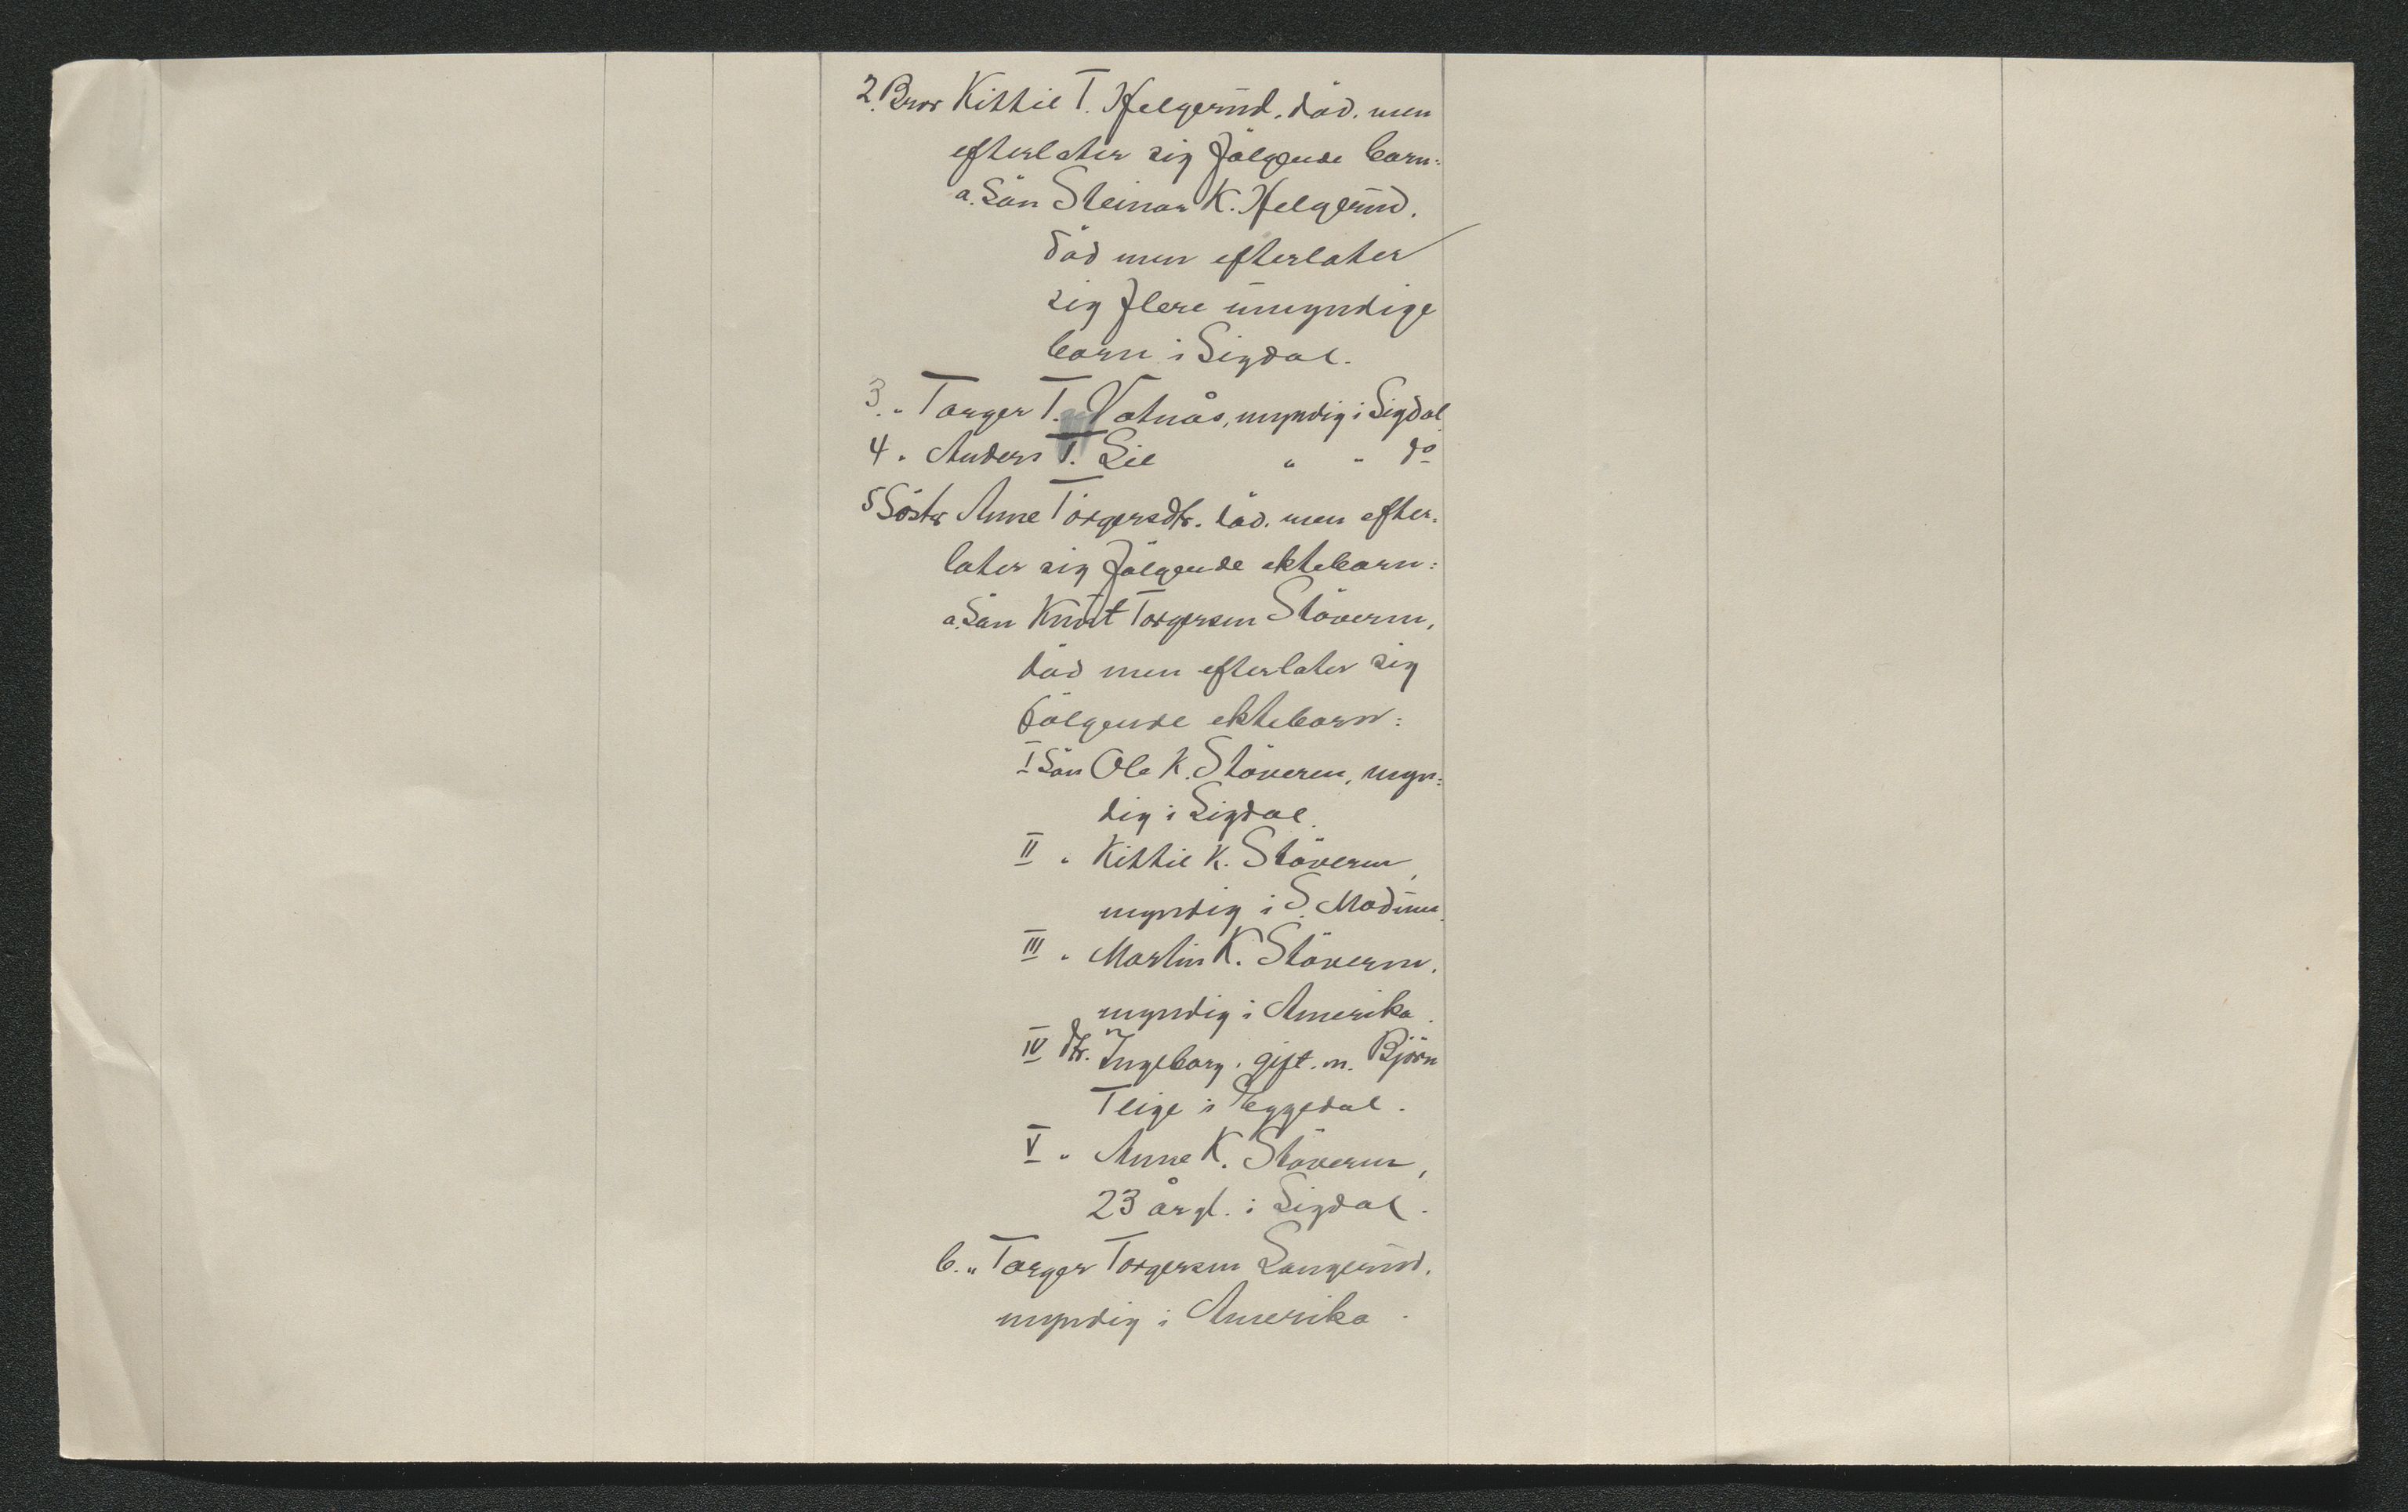 2. Bror Kittil T. Helgerud. död. men
efterlater sig fölgende barn:
a. Sön Steinar K. Helgerud.
död men efterlater
sig flere umyndige
barn i Sigdal.
3. " Torger T. Vatnås, myndig i Sigdal
4. " Anders T. Lie " " do
5 Söster Anne Torgersdtr. död. men efter-
later sig fölgende ektebarn:
a. Sön Knut Torgersen Stöveren,
död men efterlater sig
fölgende ektebarn:
I Sön Ole K. Stöveren, myn-
dig i Sigdal.
II " Kittil K. Stöveren,
myndig i S. Modum.
III " Martin K. Stöveren.
myndig i Amerika.
IV dtr. Ingeborg. gift. m. Björn
Teige i Eggedal.
V " Anne K. Stöveren,
23 årgl. i Sigdal.
b. " Torger Torgersen Langerud.
myndig i Amerika.